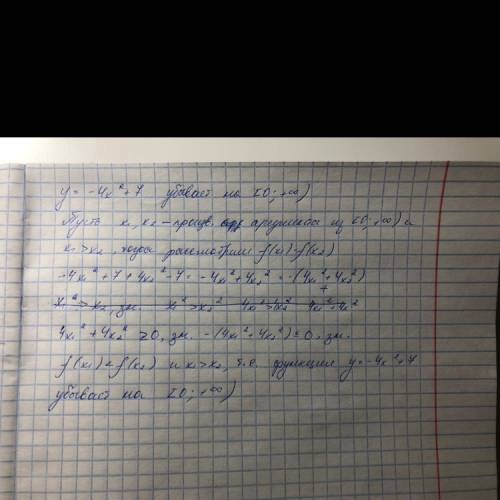 y = -4x²+7 убывает на [0; +∞)
Пусть x₁, x₂ - произв. аргументы из [0; +∞) и
x₁>x₂, тогда рассмотрим f(x₁)-f(x₂)
-4x₁²+7+4x₂²-7 = -4x₁²+4x₂² = -(4x₁²+4x₂²)
x₁²>x₂, зн. x₁²>x₂² 4x₁²>4x₂² 4x₁²+4x²
4x₁²+4x₂² ≥0, зн. -(4x₁²+4x₂²)≤0, зн.
f(x₁)<f(x₂) и x₁>x₂, т.е. функция y=-4x²+7
убывает на [0; +∞)